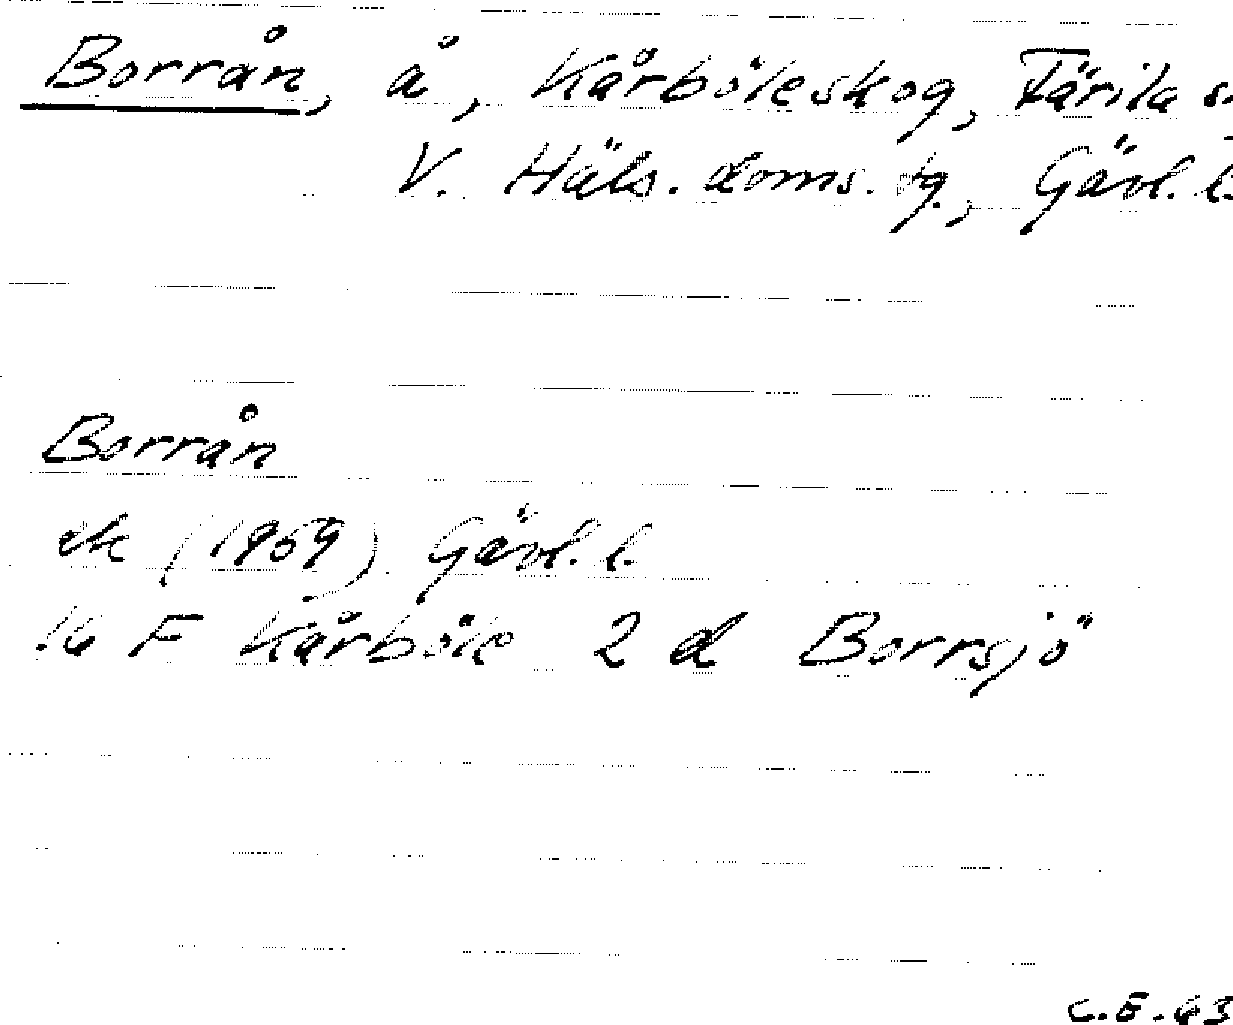 Borrån, å, Kårböleskog, Färila s.
V. Häls. doms. tg., Gävl. l.
Borrån
ek (1959) Gävl. l.
16 F Kårböle 2 d Borrsjö
C.E. 63